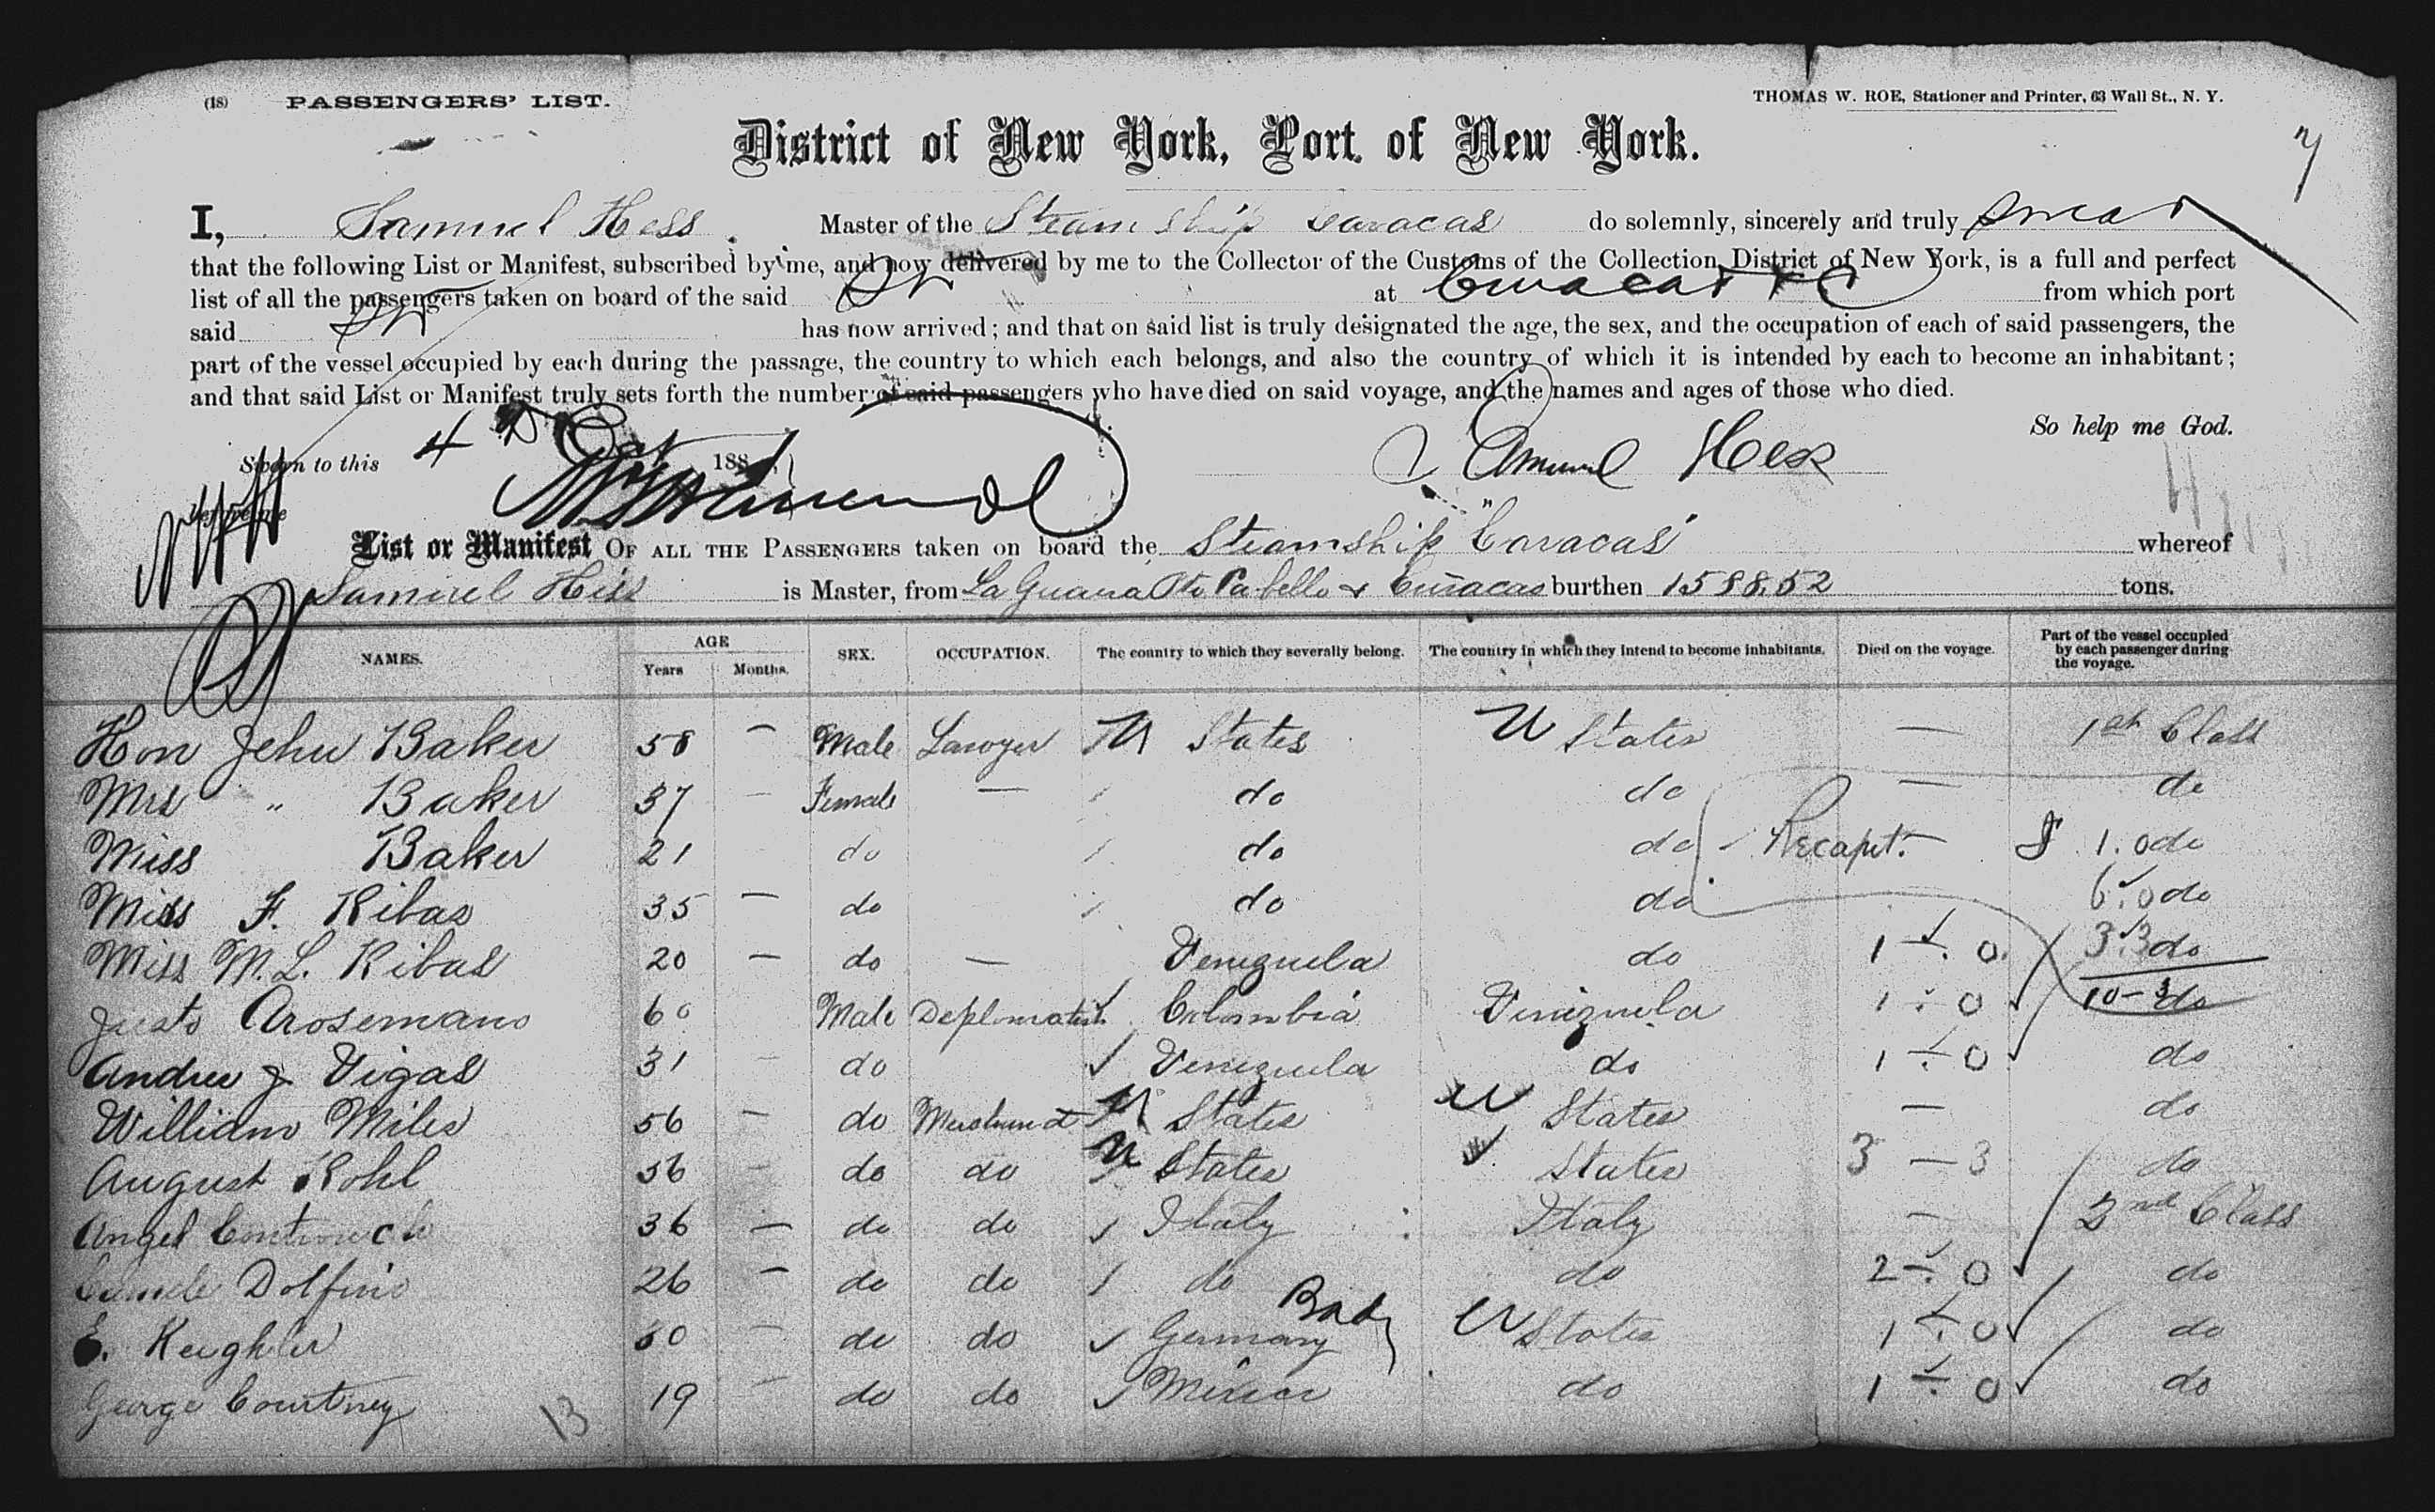 (18) PASSENGERS' LIST.
THOMAS W. ROE, Stationer and Printer, 63 Wall St., N. Y.
7
District of New York, Port of New York.
I, Samuel Hess Master of the Steam Ship Caracas do solemnly, sincerely and truly swear
that the following List or Manifest, subscribed by me, and now delivered by me to the Collector of the Customs of the Collection District of New York, is a full and perfect
list of all the passengers taken on board of the said at Curacao from which port
said has now arrived; and that on said list is truly designated the age, the sex, and the occupation of each of said passengers, the
part of the vessel occupied by each during the passage, the country to which each belongs, and also the country of which it is intended by each to become an inhabitant;
and that said List or Manifest truly sets forth the number of said passengers who have died on said voyage, and the names and ages of those who died.
So help me God.
Sworn to this 4 Oct 188
Samuel Hess
before me
List or Manifest OF ALL THE PASSENGERS taken on board the Steamship "Caracas" whereof
Samuel Hess is Master, from La Guaira Pto Cabello & Curacao burthen 1588,52 tons.
NAMES. AGE Years Months. SEX. OCCUPATION. The country to which they severally belong. The country in which they intend to become inhabitants. Died on the voyage. Part of the vessel occupied by each passenger during the voyage.
Hon Jehu Baker 58 — Male Lawyer U States U States — 1st Class
Mrs " Baker 37 — Female — do do — do
Miss Baker 21 do do do Recapt. — 1.0 do
Miss F. Ribas 35 — do do do 6.0 do
Miss M. L. Ribas 20 — do — Venezuela do 1 — 0 3.3 do
Justo Arosemano 60 Male Deplomatist Colombia Venezuela 1 — 0 10-3 do
Andres J Vigas 31 — do Venezuela do 1 — 0 do
William Miles 56 — do Merchant U States U States — do
August Rohl 56 — do do U States States 3 — 3 do
Angel 36 — do do Italy Italy — 2nd Class
Dolfino 26 — do do do do 2 — 0 do
E. Keighler 50 — do do Germany Bad U States 1 — 0 do
George Courtney 19 — do do Mexico do 1 — 0 do
13